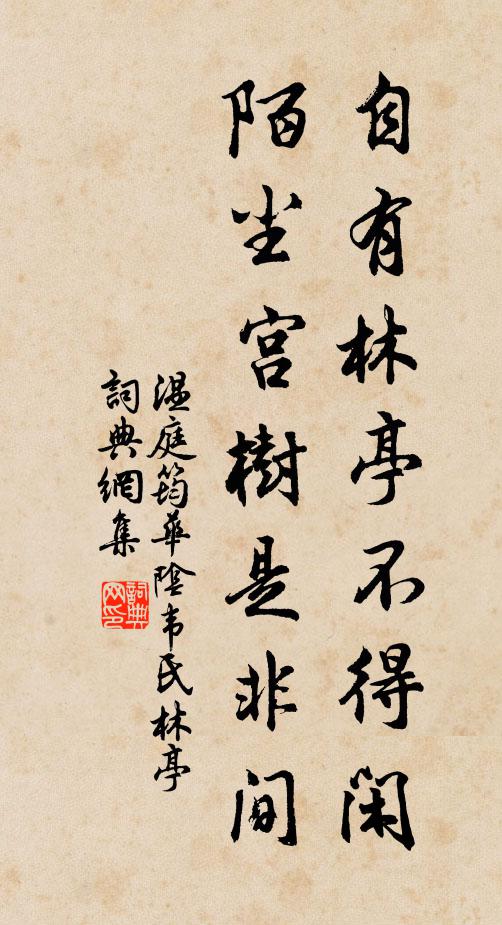 自有林亭不得閑
陌尘宫樹是非间
温庭筠華陰韦氏林亭
詞典網集
詞典网印